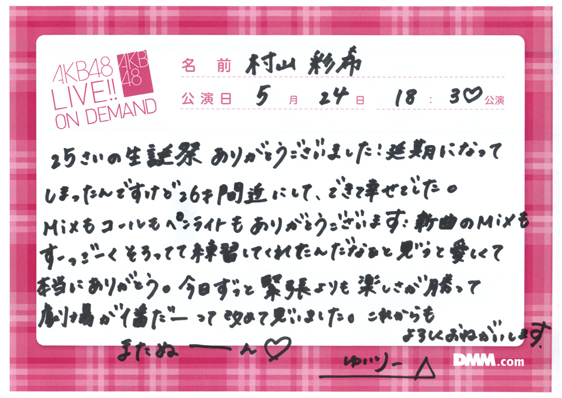 AKB48
LIVE!!
ON DEMAND
AKB
48
名前 村山彩希
公演日 5月24日 18:30公演
25さいの生誕祭ありがとうございました!延期になって
しまったんですけど26才間近にして、できて幸せでした。
Mixもコールもペンライトもありがとうございます!新曲のMixも
すーっごーくそろってて練習してくれたんだなぁと思うと愛しくて
本当にありがとう。今日ずっと緊張よりも楽しさが勝って
劇場が1番だーって改めて思いました。これからも
よろしくおねがいします!
またぬーーん♡
ゆいりー
DMM.com